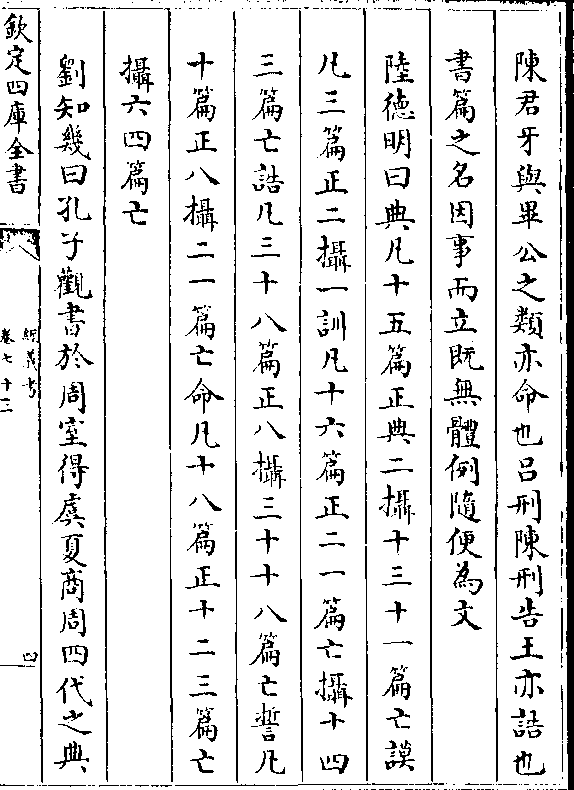 陳君牙與畢公之類亦命也呂刑陳刑告王亦誥也
書篇之名因事而立既無體例隨便為文
陸德明曰典凡十五篇正典二攝十三十一篇亡謨
凡三篇正二攝一訓凡十六篇正二一篇亡攝十四
三篇亡誥凡三十八篇正八攝三十十八篇亡誓凡
十篇正八攝二一篇亡命凡十八篇正十二三篇亡
攝六四篇亡
劉知幾曰孔子觀書於周室得虞夏商周四代之典
欽定四庫全書
經義考
卷七十三
四